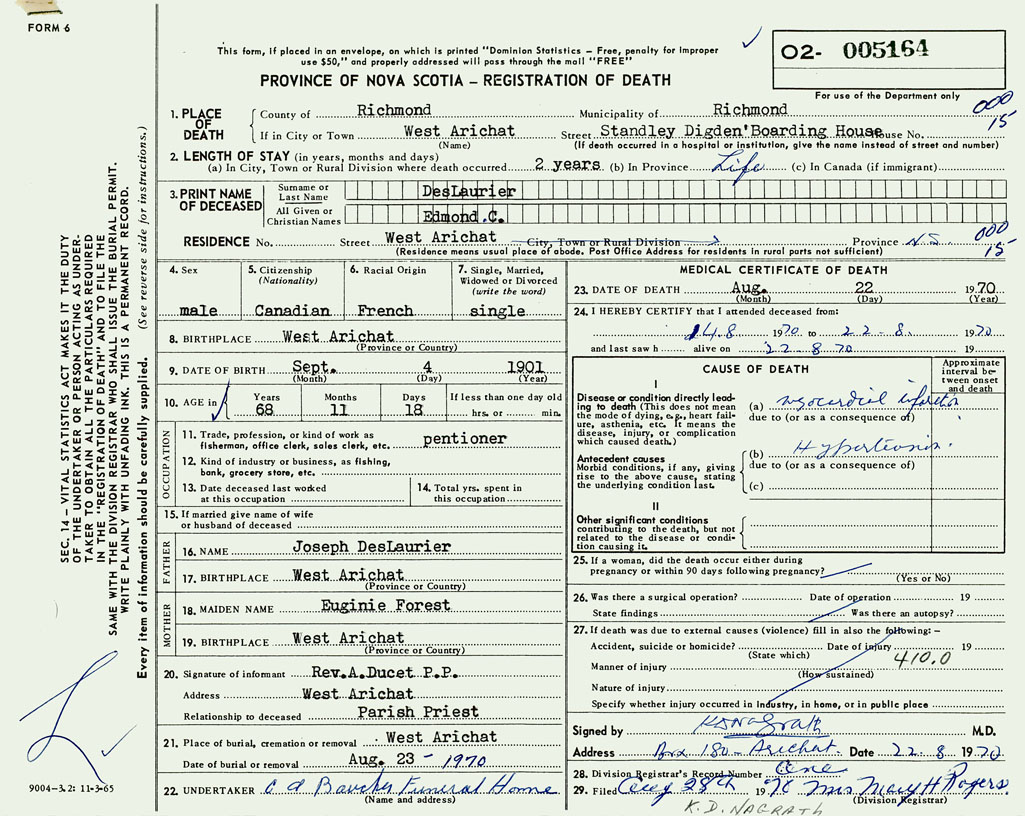 FORM 6
This form, if placed in an envelope, on which is printed "Dominion Statistics – Free, penalty for improper
use $50," and properly addressed will pass through the mail "FREE"
PROVINCE OF NOVA SCOTIA – REGISTRATION OF DEATH
02- 005164
For use of the Department only
000
15
1. PLACE OF DEATH
County of Richmond Municipality of Richmond
If in City or Town West Arichat Street Standley Digden'Boarding House House No.
(Name) (If death occurred in a hospital or institution, give the name instead of street and number)
2. LENGTH OF STAY (in years, months and days)
(a) In City, Town or Rural Division where death occurred 2 years (b) In Province Life (c) In Canada (if immigrant)
3. PRINT NAME OF DECEASED
Surname or Last Name DesLaurier
All Given or Christian Names Edmond C.
RESIDENCE No. Street West Arichat City, Town or Rural Division Province N.S. 000
15
(Residence means usual place of abode. Post Office Address for residents in rural parts not sufficient)
4. Sex male
5. Citizenship (Nationality) Canadian
6. Racial Origin French
7. Single, Married, Widowed or Divorced (write the word) single
8. BIRTHPLACE West Arichat
(Province or Country)
9. DATE OF BIRTH Sept. 4 1901
(Month) (Day) (Year)
10. AGE in Years 68 Months 11 Days 18 If less than one day old hrs. or min.
OCCUPATION
11. Trade, profession, or kind of work as fisherman, office clerk, sales clerk, etc. pentioner
12. Kind of industry or business, as fishing, bank, grocery store, etc.
13. Date deceased last worked at this occupation
14. Total yrs. spent in this occupation
15. If married give name of wife or husband of deceased
FATHER
16. NAME Joseph DesLaurier
17. BIRTHPLACE West Arichat
(Province or Country)
MOTHER
18. MAIDEN NAME Euginie Forest
19. BIRTHPLACE West Arichat
(Province or Country)
20. Signature of informant Rev.A.Ducet P.P.
Address West Arichat
Relationship to deceased Parish Priest
21. Place of burial, cremation or removal West Arichat
Date of burial or removal Aug. 23 - 1970
22. UNDERTAKER Funeral Home
(Name and address)
MEDICAL CERTIFICATE OF DEATH
23. DATE OF DEATH Aug. 22 1970
(Month) (Day) (Year)
24. I HEREBY CERTIFY that I attended deceased from:
14.8 1970 to 22-8. 1970
and last saw h alive on 22.8.70 19
CAUSE OF DEATH
Approximate interval between onset and death
I
Disease or condition directly leading to death (This does not mean the mode of dying, e.g., heart failure, asthenia, etc. It means the disease, injury, or complication which caused death.)
(a) myocardial
due to (or as a consequence of)
Antecedent causes
Morbid conditions, if any, giving rise to the above cause, stating the underlying condition last.
(b) Hypertension.
due to (or as a consequence of)
(c)
II
Other significant conditions contributing to the death, but not related to the disease or condition causing it.
25. If a woman, did the death occur either during pregnancy or within 90 days following pregnancy?
(Yes or No)
26. Was there a surgical operation? Date of operation 19
State findings Was there an autopsy?
27. If death was due to external causes (violence) fill in also the following: –
Accident, suicide or homicide? Date of injury 19
(State which) 410.0
Manner of injury
(How sustained)
Nature of injury
Specify whether injury occurred in industry, in home, or in public place
Signed by M.D.
Address Box 180 - Arichat. Date 22.8.1970
28. Division Registrar's Record Number One
29. Filed 28th 1970 Mrs Mary H Rogers.
(Division Registrar)
K.D. NAGRATH
SEC. 14 – VITAL STATISTICS ACT MAKES IT THE DUTY
OF THE UNDERTAKER OR PERSON ACTING AS UNDER-
TAKER TO OBTAIN ALL THE PARTICULARS REQUIRED
IN THE "REGISTRATION OF DEATH" AND TO FILE THE
SAME WITH THE DIVISION REGISTRAR WHO SHALL ISSUE THE BURIAL PERMIT.
WRITE PLAINLY WITH UNFADING INK. THIS IS A PERMANENT RECORD.
Every item of information should be carefully supplied. (See reverse side for instructions.)
9004-3.2: 11-3-65